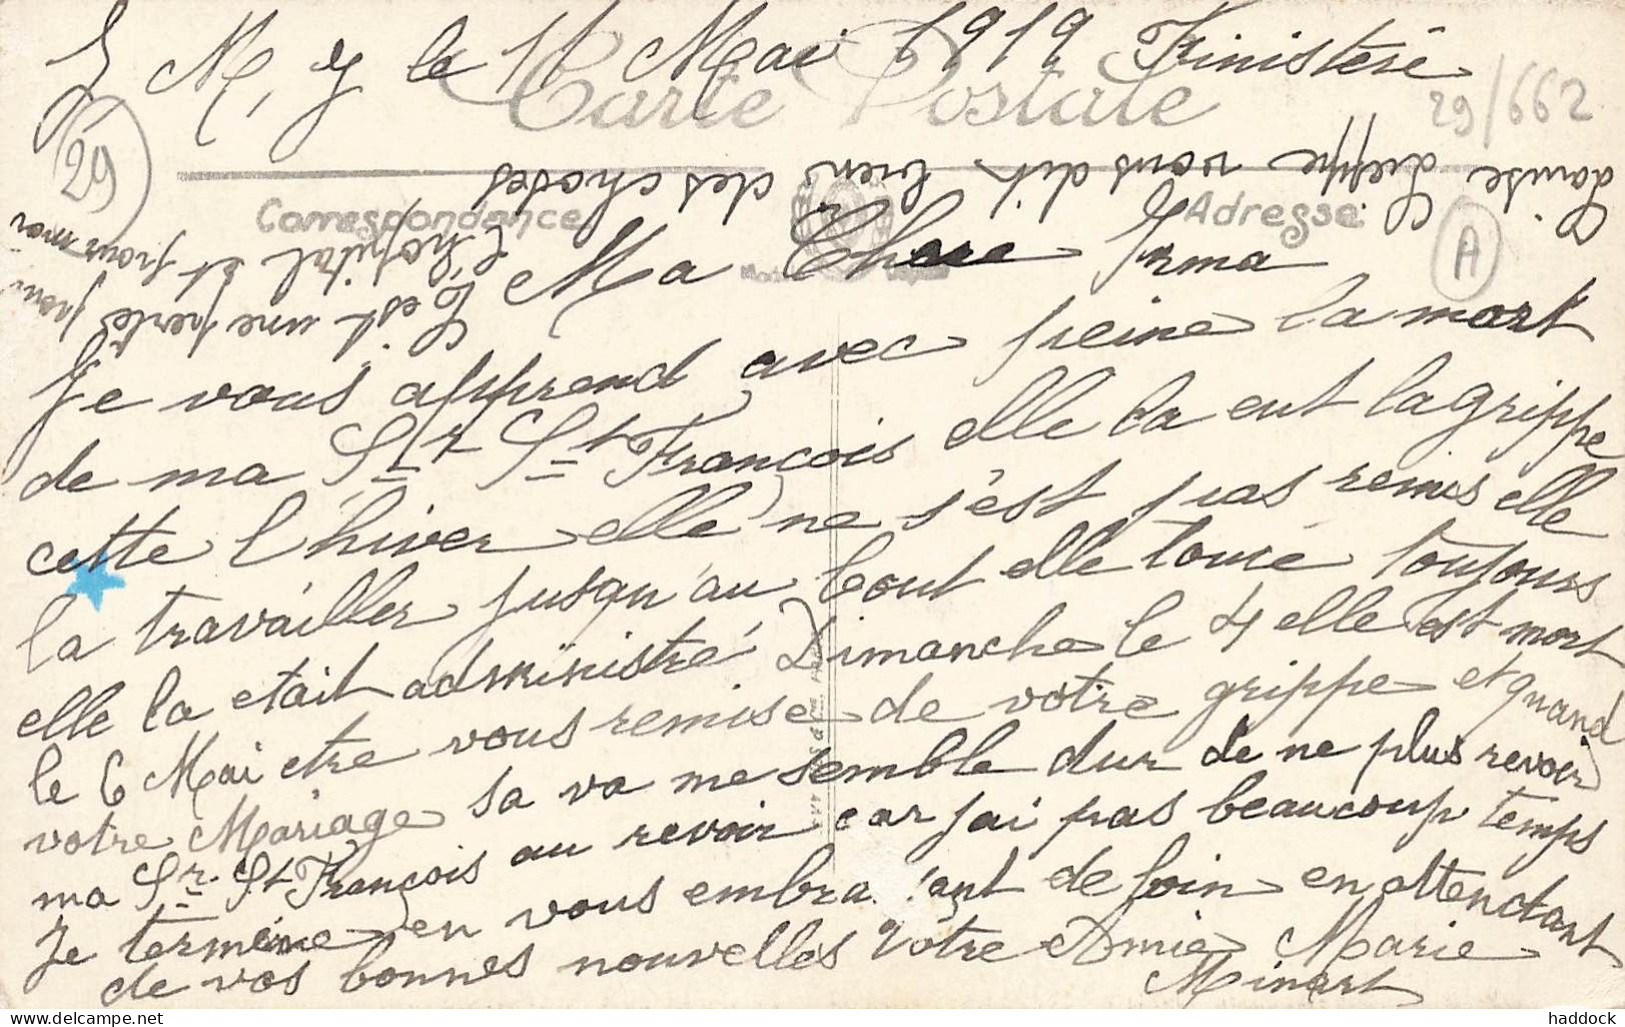 J, M, J le 11 Mai 1919 Finistère
Carte Postale
29/662
29
Correspondance
Adresse
A
Ma Chere Irma
Je vous apprend avec peine la mort
de ma Sr St François elle la eut la grippe
cette l'hiver elle ne s'est pas remis elle
la travailler jusqu'au bout elle toucé toujours
elle la etait administré Dimanche le 4 elle est mort
le 6 Mai etre vous remise de votre grippe et quand
votre Mariage sa va me semble dur de ne plus revoir
ma Sr St François au revoir car j'ai pas beaucoup temps
Je termine en vous embrassant de loin en attendant
de vos bonnes nouvelles Votre Amie Marie
Minart
C'est une perte pour
l'hopital et pour moi
Louise Dieppe vous dit bien
des choses
haddock